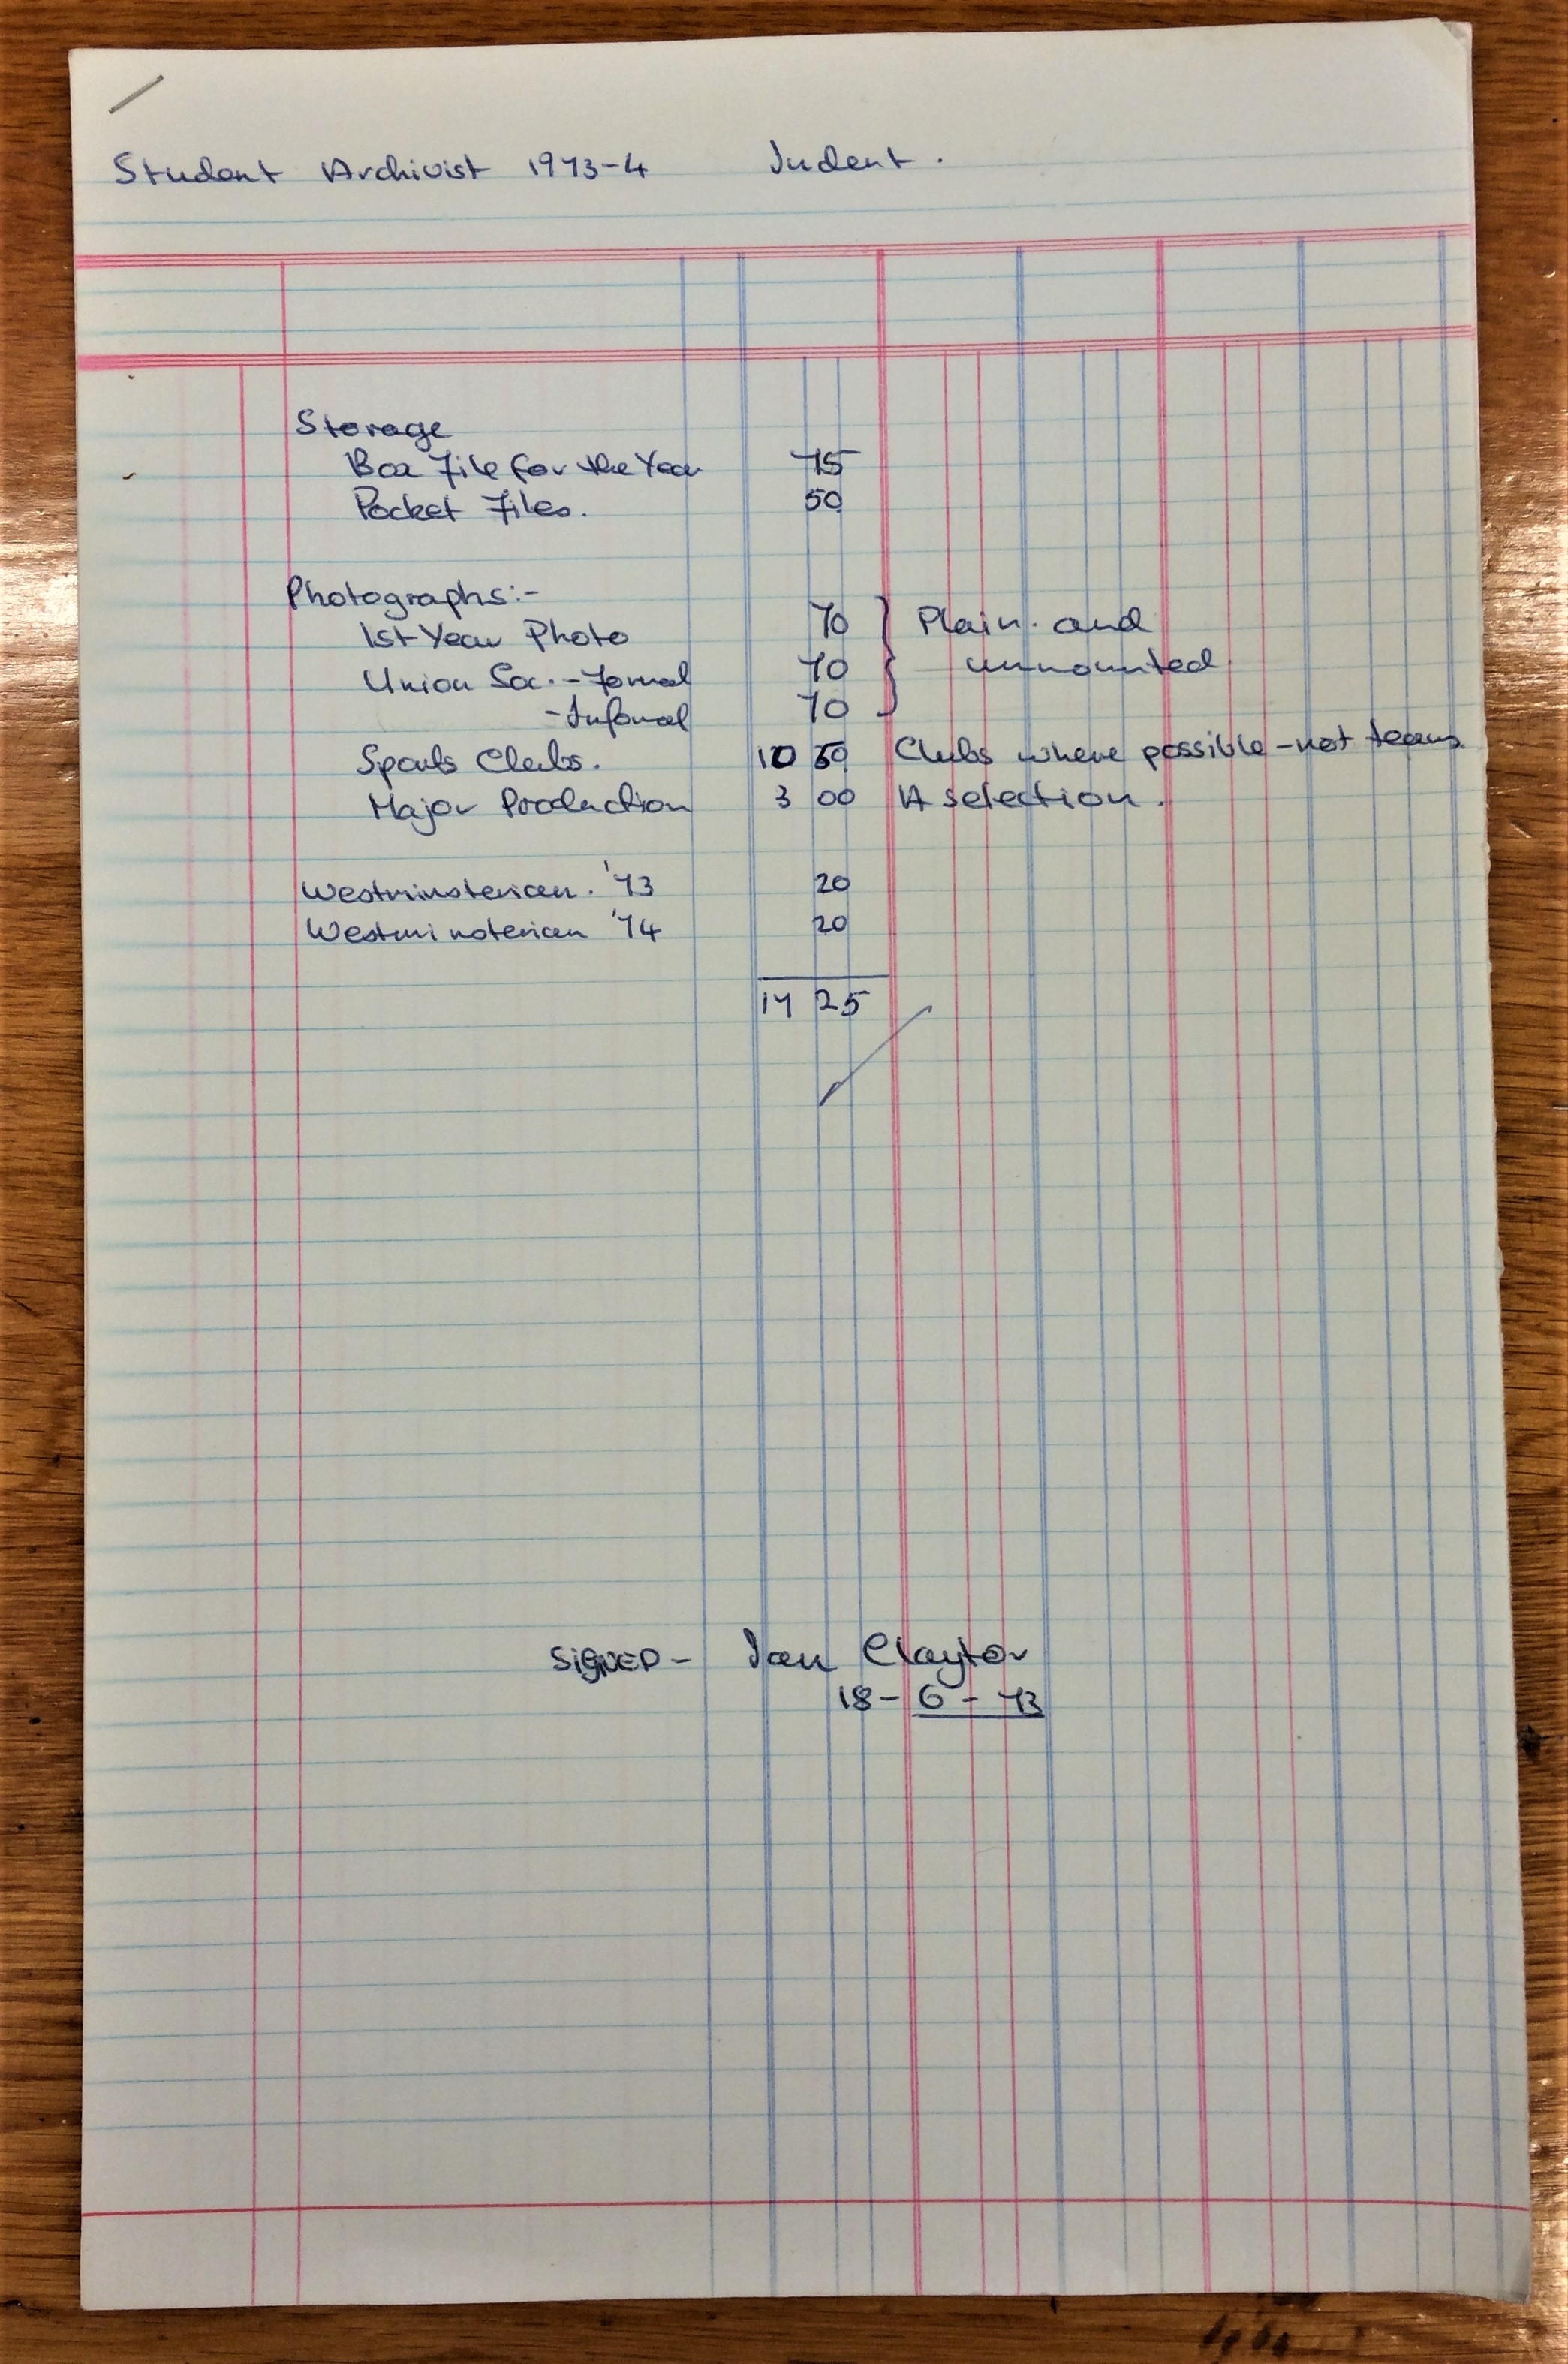 Student Archivist 1973-4 Indent.
Storage
Box File for the Year 75
Pocket Files. 50
Photographs:-
1st Year Photo 70 } Plain and
Union Soc. - Formal 70 } unmounted
- Informal 70 }
Sports Clubs. 10 50 Clubs where possible - not teams.
Major Production 3 00 A selection.
Westminsterian. '73 20
Westminsterian '74 20
17 25
SIGNED - Ian Clayton
18 - 6 - 73